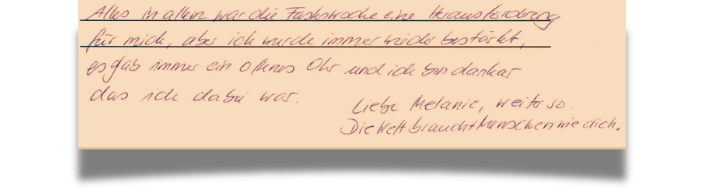 Alles in allem war die Fastenwoche eine Herausforderung
für mich, aber ich wurde immer wieder bestärkt,
es gab immer ein offenes Ohr und ich bin dankbar
das ich dabei war.
Liebe Melanie, weiter so.
Die Welt braucht Menschen wie dich.